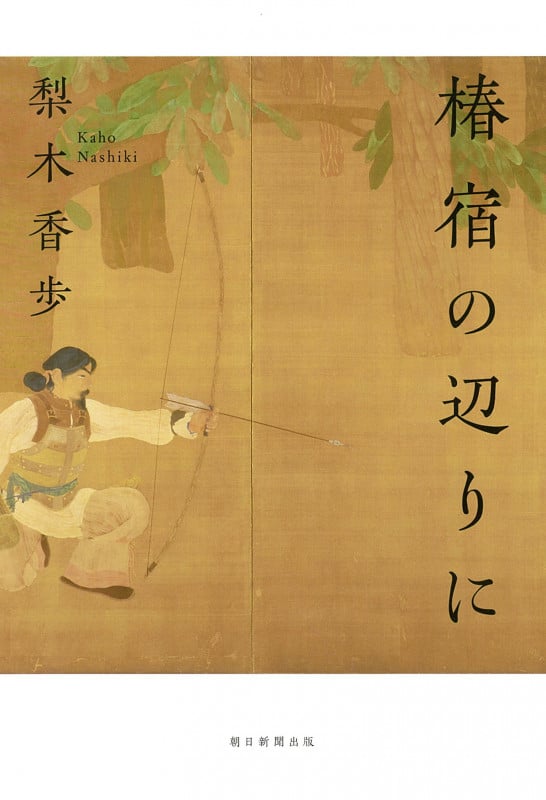 椿宿の辺りに
梨木香歩
Kaho
Nashiki
朝日新聞出版